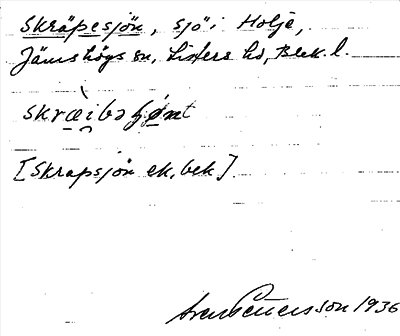 Skräpesjön, sjö i Holje,
Jämshögs sn, Listers hd, Blek. l.
skræibəʃønt
[Skrapsjön ek, bek]
Sven Benson 1936